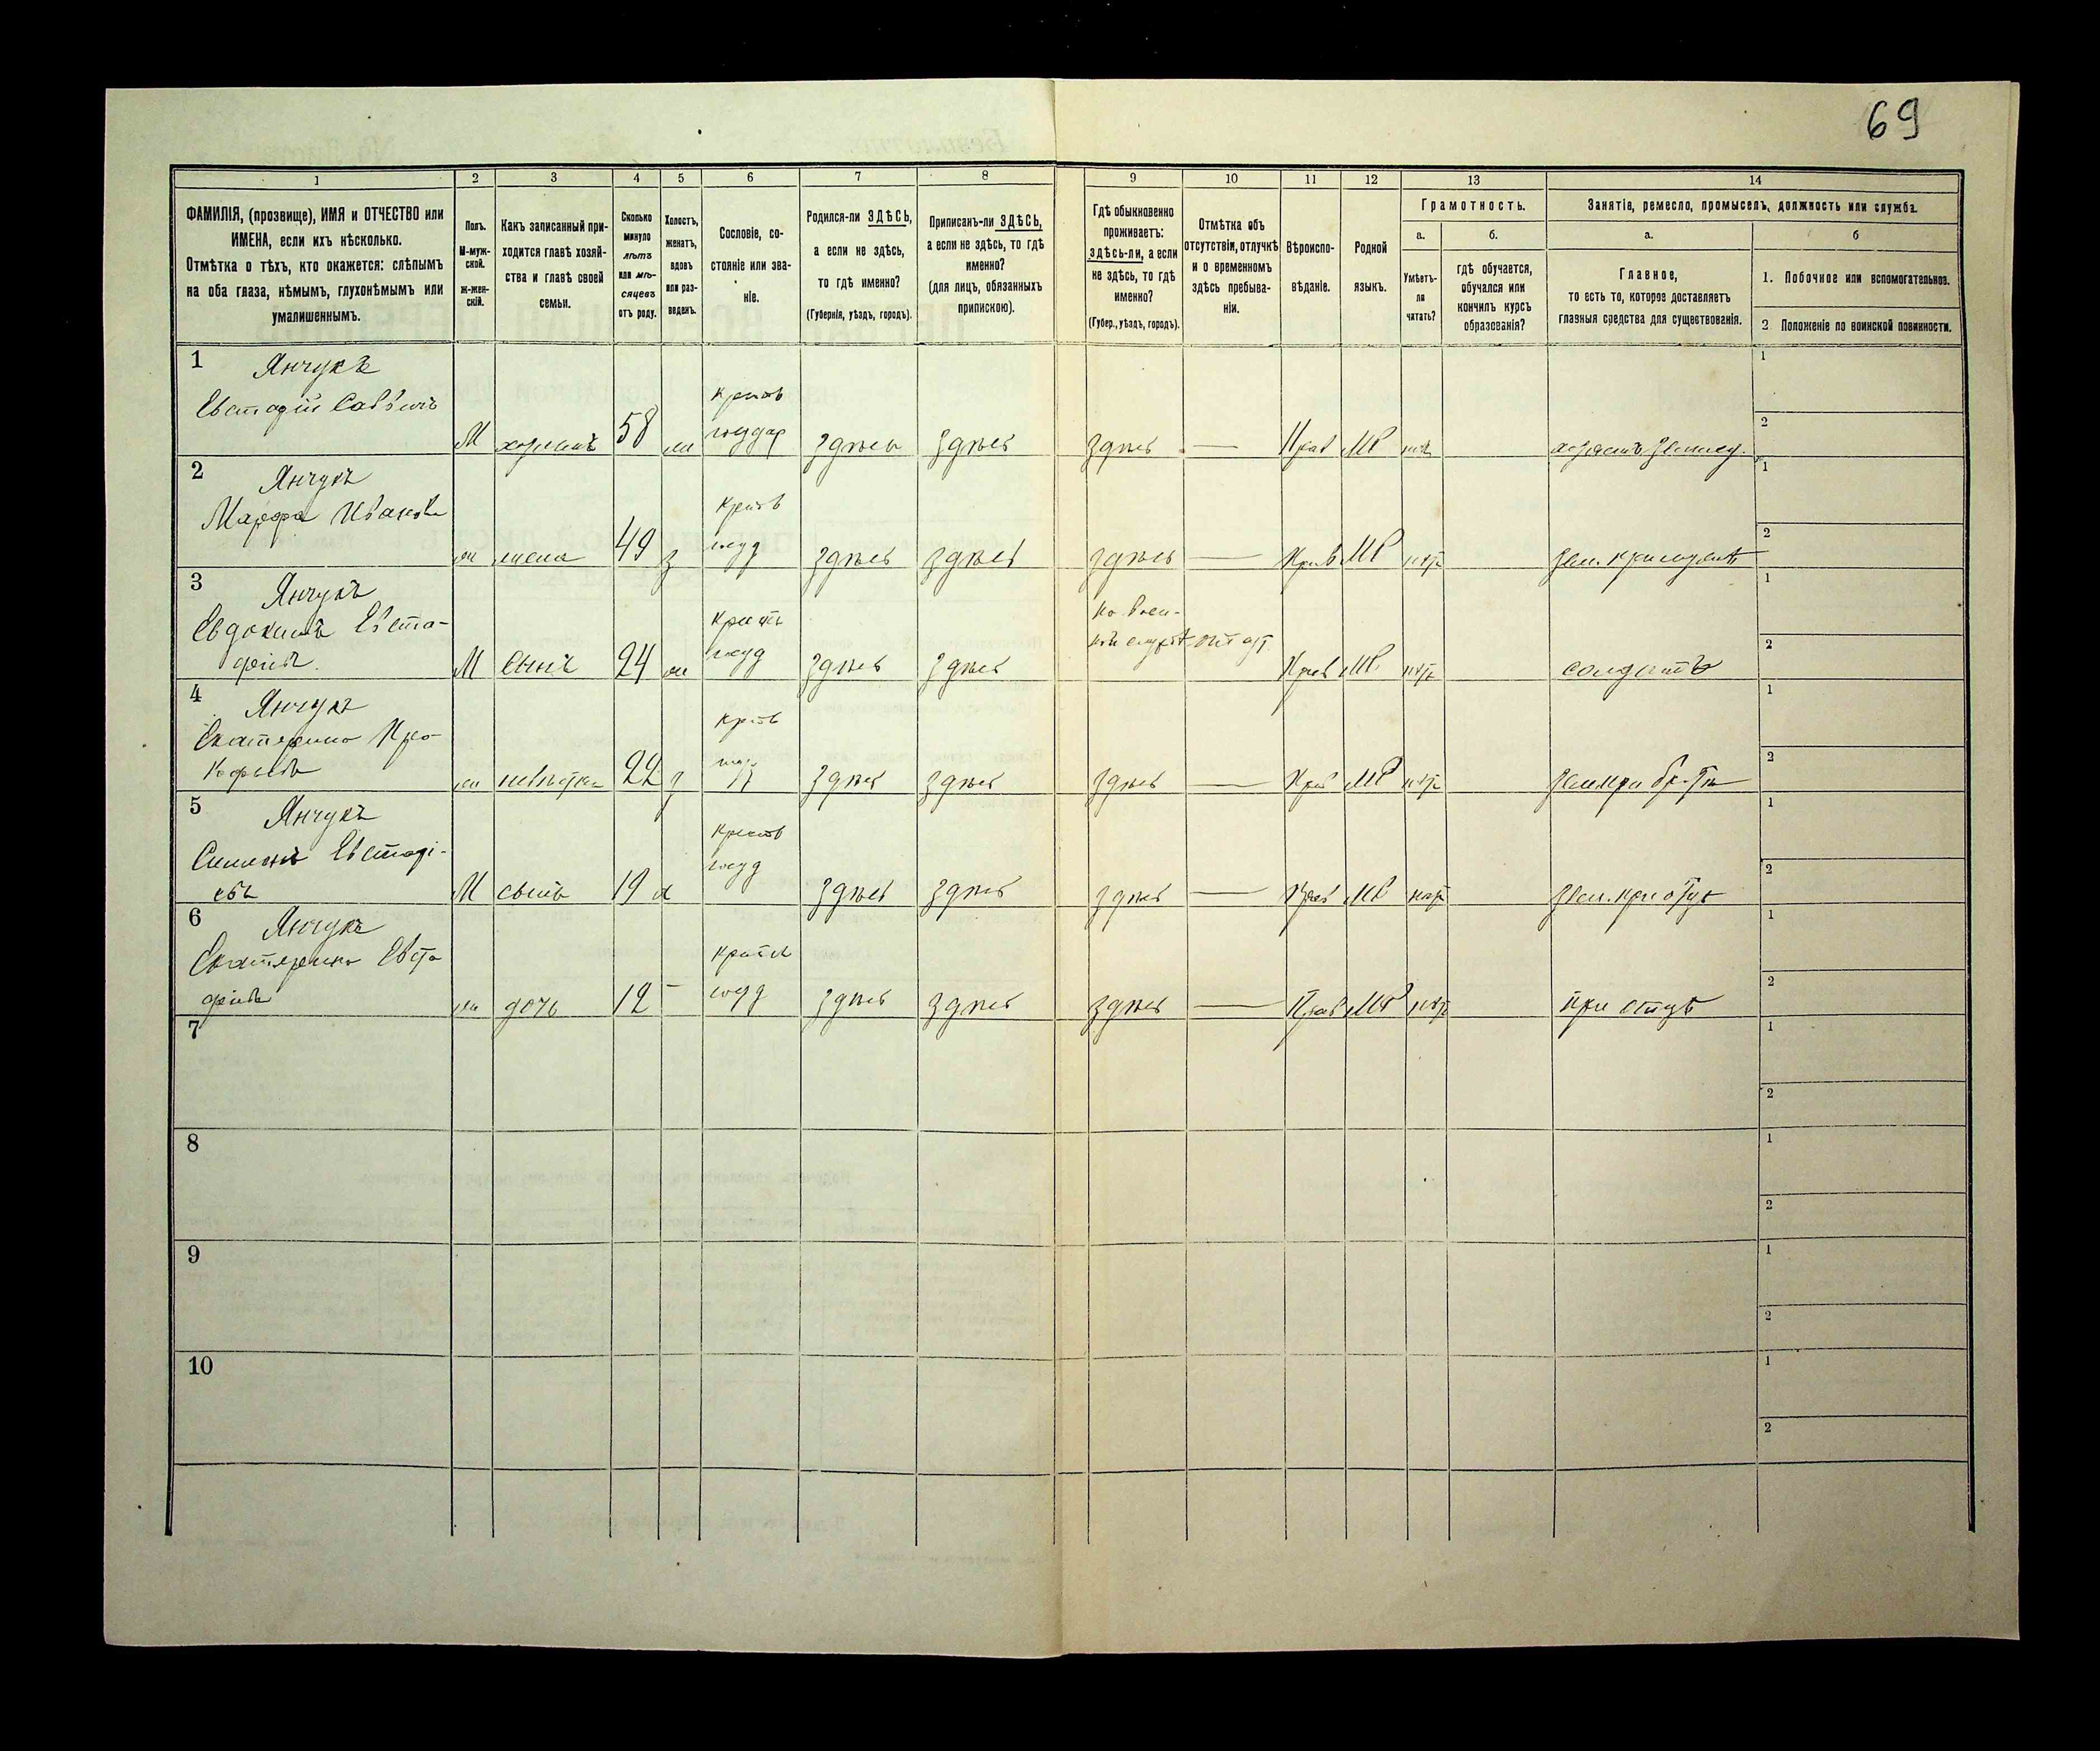 69
1 2 3 4 5 6 7 8 9 10 11 12 13 14
ФАМИЛІЯ, (прозвище), ИМЯ и ОТЧЕСТВО или
ИМЕНА, если ихъ нѣсколько.
Отмѣтка о тѣхъ, кто окажется: слѣпымъ
на оба глаза, нѣмымъ, глухонѣмымъ или
умалишеннымъ.
Полъ.
М-муж-
ской.
ж-жен-
скій.
Какъ записанный при-
ходится главѣ хозяй-
ства и главѣ своей
семьи.
Сколько
минуло
лѣтъ
или мѣ-
сяцевъ
отъ роду.
Холостъ,
женатъ,
вдовъ
или раз-
веденъ.
Сословіе, со-
стояніе или зва-
ніе.
Родился-ли ЗДѢСЬ,
а если не здѣсь,
то гдѣ именно?
(Губернія, уѣздъ, городъ).
Приписанъ-ли ЗДѢСЬ,
а если не здѣсь, то гдѣ
именно?
(для лицъ, обязанныхъ
припискою).
Гдѣ обыкновенно
проживаетъ:
здѣсь-ли, а если
не здѣсь, то гдѣ
именно?
(Губер., уѣздъ, городъ).
Отмѣтка объ
отсутствіи, отлучкѣ
и о временномъ
здѣсь пребыва-
ніи.
Вѣроиспо-
вѣданіе.
Родной
языкъ.
Грамотность.
а.
Умѣетъ-
ли
читать?
б.
гдѣ обучается,
обучался или
кончилъ курсъ
образованія?
Занятіе, ремесло, промыселъ, должность или служба.
а.
Главное,
то есть то, которое доставляетъ
главныя средства для существованія.
б
1. Побочное или вспомогательное.
2 Положеніе по воинской повинности.
1 Янчукъ
Евстафій Саввичъ
М хозяинъ 58 ж
государ
здѣсь здѣсь здѣсь — Прав МР
1
2
2 Янчукъ
Марфа Иванова
ж жена 49 з
госуд
здѣсь здѣсь здѣсь — Прав МР
1
2
3 Янчукъ
Евдокимъ Евста-
фіевъ
М сынъ 24 ж
госуд
здѣсь здѣсь
на воен-
Прав МР
солдатъ
1
2
4 Янчукъ
Екатерина Про-
кофьева
ж невѣстка 22 з
здѣсь здѣсь здѣсь — Прав МР
1
2
5 Янчукъ
Симонъ Евстафі-
евъ
М сынъ 19 х
госуд
здѣсь здѣсь здѣсь — Прав МР
1
2
6 Янчукъ
Екатерина Евста
фіева
ж дочь 12 —
госуд
здѣсь здѣсь здѣсь — Прав МР
при отцѣ
1
2
7
1
2
8
1
2
9
1
2
10
1
2